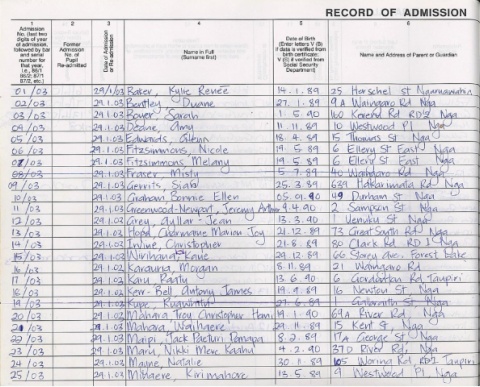 RECORD OF ADMISSION
1 2 3 4 5 6
Admission No. (last two digits of year of admission, followed by bar and serial number for that year, i.e., 86/1 86/2; 87/1 87/2, etc.) Former Admission No. of Pupil Re-admitted Date of Admission or Re-admission Name in Full (Surname first) Date of Birth (Enter letters V (B) if date is verified from birth certificate; V (S) if verified from Social Security Department) Name and Address of Parent or Guardian
01/03 29/1/03 Bater, Kylie Renee 14.1.89 25 Herschel St Ngaruawahia
02/03 29.1.03 Bentley Duane 27.1.89 9A Waingaro Rd Nga
03/03 29.1.03 Boyer Sarah 1.5.90 160 Kereru Rd RD2 Nga
04/03 29.1.03 Deane, Amy 11.11.89 10 Westwood Pl Nga
05/03 29.1.03 Edwards, 18.4.89 15 Thomas St Nga
06/03 29.1.03 Fitzsimmons, Nicole 19.5.89 6 Ellery St East Nga
07/03 29.1.03 Fitzsimmons, Melany 19.5.89 6 Ellery St East Nga
08/03 29.1.03 Fraser, Misty 5.7.89 40 Waingaro Rd Nga
09/03 29.1.03 Gerrits, 25.3.89 Hakarimata Rd Nga
10/03 29.1.03 Graham, Bonnie Ellen 05.01.90 49 Durham St Nga
11/03 29.1.03 Greenwood-Newport, Jeremy Arthur 9.4.90 2 Sampson St Nga
12/03 29.1.03 Grey, - Jean 13.3.90 1 St Nga
13/03 29.1.03 Hopa, Charmaine Marion Joy 21.12.89 73 Great South Rd Nga
14/03 29.1.03 Irvine, Christopher 21.8.89 80 Clark Rd RD 1 Nga
15/03 29.1.03 Kaye 29.12.89 66 Storey Ave. Forest Lake
16/03 29.1.03 Karauria, Morgan 8.11.89 21 Waingaro Rd
17/03 29.1.03 13.6.90 6 Rd Taupiri
18/03 29.1.03 Kerr-Bell, Antony James 19.9.89 16 Newton St Nga
19/03 29.1.03 Kupe, 27.6.89 1 Galbraith St Nga
20/03 29.1.02 Mahara, Troy Christopher 19.1.90 69A River Rd, Nga
21/03 29.1.03 Mahara, Waihaere 29.11.89 15 Kent St, Nga
22/03 29.1.03 Maipi, Jack 8.2.89 17A George St Nga
23/03 29.1.03 Maru, Nikki Mere 4.2.90 37D River Rd, Nga
24/03 29.1.03 Mayne, Natalie 30.11.89 Rd, RD1 Taupiri
25/03 29.1.03 Kirimahore 13.5.89 9 Westwood Pl Nga